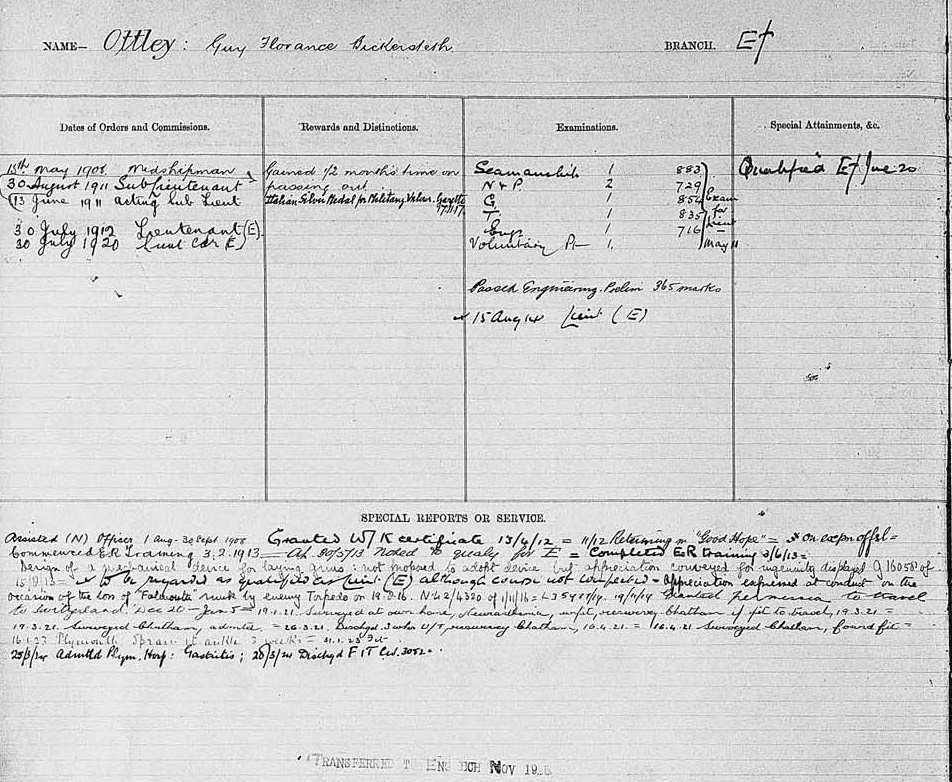 NAME— Ottley: Guy Florance Bickersteth BRANCH. E†
Dates of Orders and Commissions. Rewards and Distinctions. Examinations. Special Attainments, &c.
15th May 1908 Midshipman
30 August 1911 Sub Lieutenant
13 June 1911 acting Sub Lieut
30 July 1912 Lieutenant (E)
30 July 1920 Lieut Cdr (E)
Gained 12 months time on
passing out
Italian Silver Medal for Military Valour. Gazette
Seamanship 1 883
N & P 2 729
G 1 854
T 1 835
Eng 1 716
Voluntary 1.
Exam
for
Lieut
May 11
Passed Engineering Prelim 365 marks
15 Aug 14 Lieut (E)
Qualified E† June 20
SPECIAL REPORTS OR SERVICE.
Assisted (N) Officer 1 Aug - 30 Sept 1908 Granted W/K certificate 13/4/12 = 11/12 Returning in "Good Hope" =
Commenced E.R. Training 3.2.1913 = 30/5/13 Noted to qualify for E = Completed E.R training
Design of a mechanical device for laying guns: not proposed to adopt device but appreciation conveyed for ingenuity displayed G 16058 of
15/9/13 = to be regarded as qualified as Lieut (E) although course not completed = Appreciation expressed at conduct on the
occasion of the loss of "Falmouth" sunk by enemy Torpedo on 19.8.16. Granted permission to travel
to Switzerland Dec 20 - Jan 5 = 19.1.21. Surveyed at own home, Neurasthenia, unfit, resurvey Chatham if fit to travel, 19.3.21 =
19.3.21 Surveyed Chatham, admit = 26.3.21. Dischgd 3 wks resurvey Chatham, 16.4.21 = 16.4.21 Surveyed Chatham, found fit =
Plymouth Sprained ankle 3 weeks = Fit
Admttd Plym. Hosp: Gastritis; 28/3/24 Dischgd FIT
TRANSFERRED TO NOV